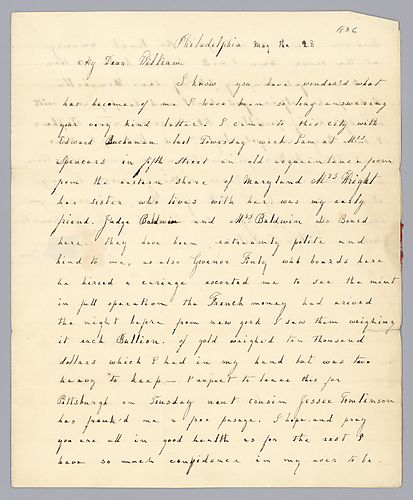 1836
Philadelphia May the 28
My Dear William
I know you have wonder'd what
has become of me I have been so long answering
your very kind letter. I came to this city with
Edward Buchanan last Tewesday week I am at Mrs
Spencers in fifth Street an old acquaintance from
from the eastern shore of Maryland Mrs Wright
her sister who lives with her was my early
friend. Judge Baldwin and Mrs Baldwin also Board
here. they have been extreamly polite and
kind to me, as also Govenor Finly who boards here
he hireed a cariage escorted me to see the mint
in full operation the French money had arived
the night before from new york I saw them weighing
it each Bullion. of gold weigh'd ten thousand
dollars which I had in my hand but was two
heavey to keep — I expect to leave this for
Pittsburgh on Teusday next cousin Jessee Tomlinson
has frank'd me a free pasage. I hope and pray
you are all in good health as for the rest I
have so much confidence in my ever to be.